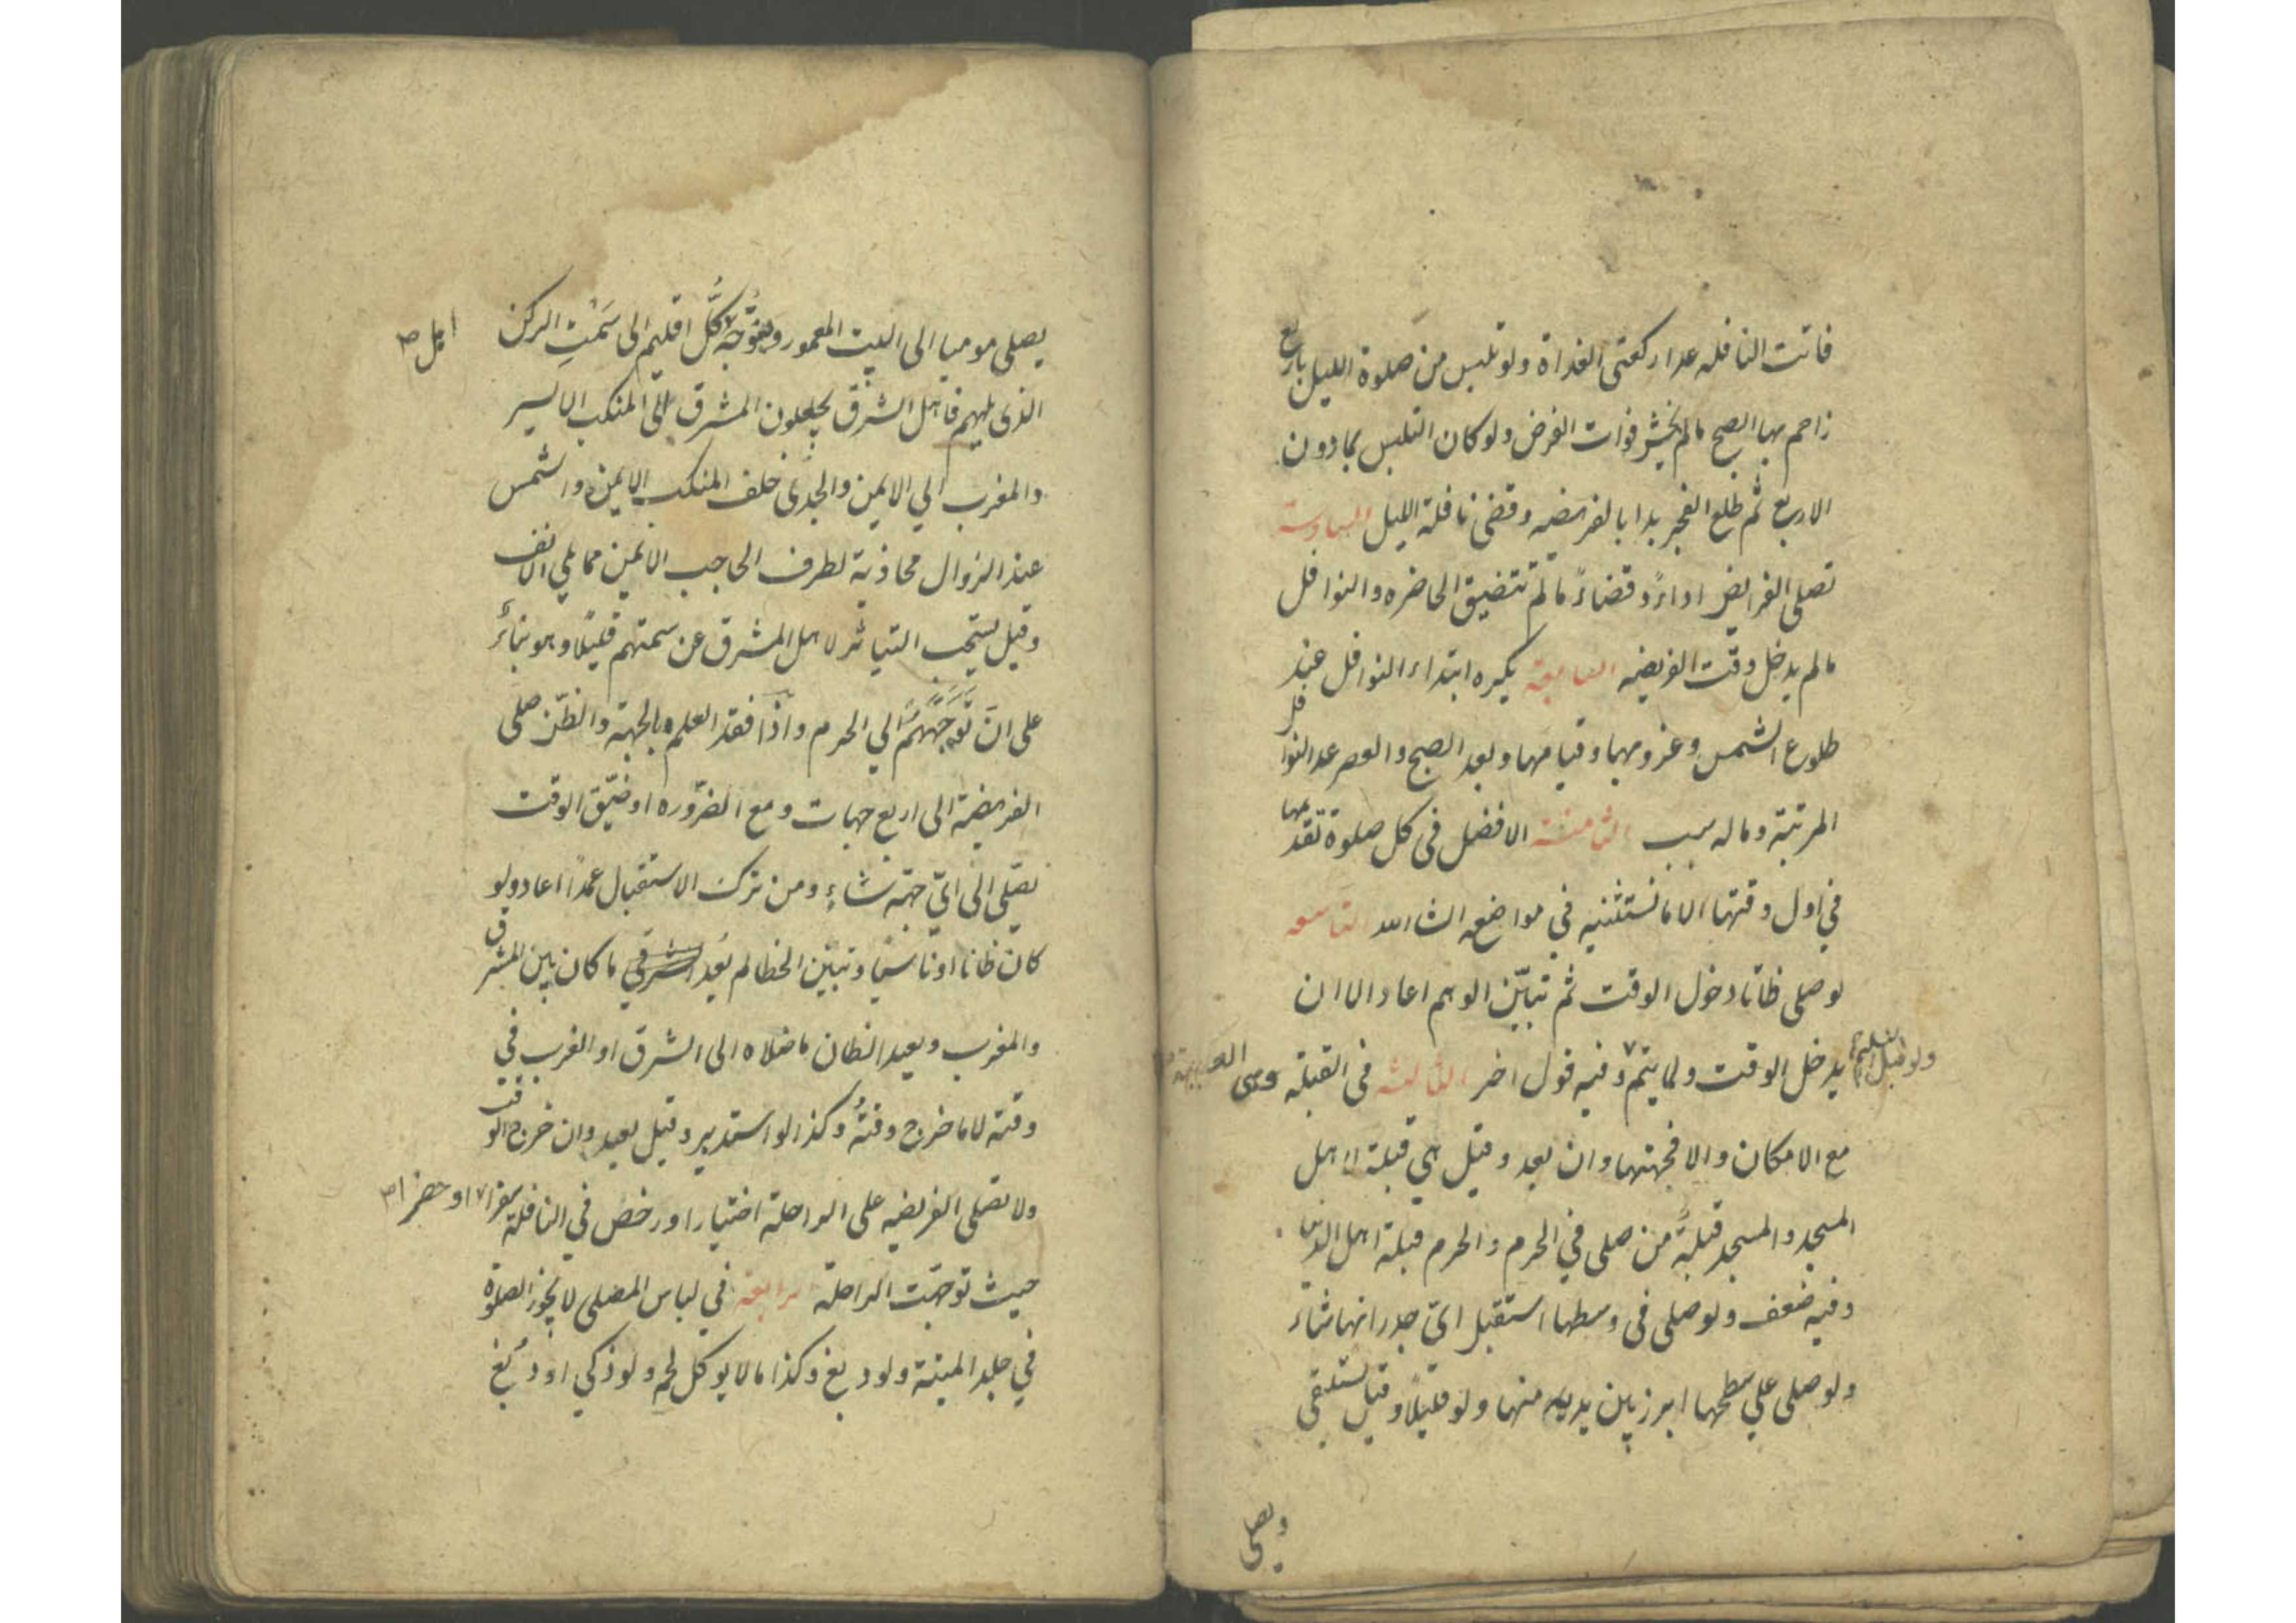 فاتت النافله عدا ركعتى الغداة ولو تلبس من صلوة الليل باربع
زاحم بها الصبح مالم يخش فوات الفرض ولو كان التلبس بما دون
الاربع ثم طلع الفجر بدا بالفريضه وقضى نافلة الليل السادسة
تصلى الفرايض اداءً وقضاءً مالم تتضيق الحاضره والنوافل
مالم يدخل وقت الفريضه السابعة يكره ابتداء النوافل عند
طلوع الشمس وغروبها وقيامها وبعد الصبح والعصر عدا النوافل
المرتبة وماله سبب الثامنة الافضل فى كل صلوة تقديمها
في اول وقتها الا ما نستثنيه في مواضعه انشا الله التاسعه
لو صلى ظانا دخول الوقت ثم تبيّن الوهم اعاد الا ان
يدخل الوقت ولما يتم وفيه قول اخر الثالثه فى القبله وهى الكعبة
ولو قبل التسليم
مع الامكان والا فجهتها وان بعد وقيل هي قبلة اهل
المسجد والمسجد قبلة من صلى في الحرم والحرم قبلة اهل الدنيا
وفيه ضعف ولو صلى فى وسطها استقبل اىّ جدرانها شاء
ولو صلى علي سطحها ابرز بين يديه منها ولو قليلاً وقيل يستلقى
ويصلى
يصلى موميا الى البيت المعمور ويتوجه كلّ اقليم الى سَمْتِ الركن
اهل
الذى يليهم فاهل الشرق يجعلون المشرق الى المنكب الايسر
والمغرب الي الايمن والجدى خلف المنكب الايمن والشمس
عند الزوال محاذية لطرف الحاجب الايمن مما يلي الانف
وقيل يستحب التياسر لاهل المشرق عن سمتهم قليلاً وهو بناءً
على انّ توجّههم الي الحرم واذا فقد العلم بالجهة والظن صلى
الفريضة الى اربع جهات ومع الضّروره او ضيق الوقت
يصلّى الى ايّ جهة شاء ومن ترك الاستقبال عمداً اعاد ولو
كان ظانا او ناسيا وتبيّن الخطا لم يُعد ما كان بين المشرق
والمغرب ويعيد الظان ما صلاه الى الشرق او الغرب في
وقته لا ما خرج وقتهُ وكذا لو استدبر وقيل يعيد وان خرج الوقت
ولا تصلى الفريضه على الراحلة اختيارا ورخص في النافلة سفرا او حضرا
حيث توجّهت الراحلة الرابعة في لباس المصلى لا يجوز الصلوة
في جلد الميتة ولو دبغ وكذا ما لا يوكل لحمه ولو ذكي او دُبغ